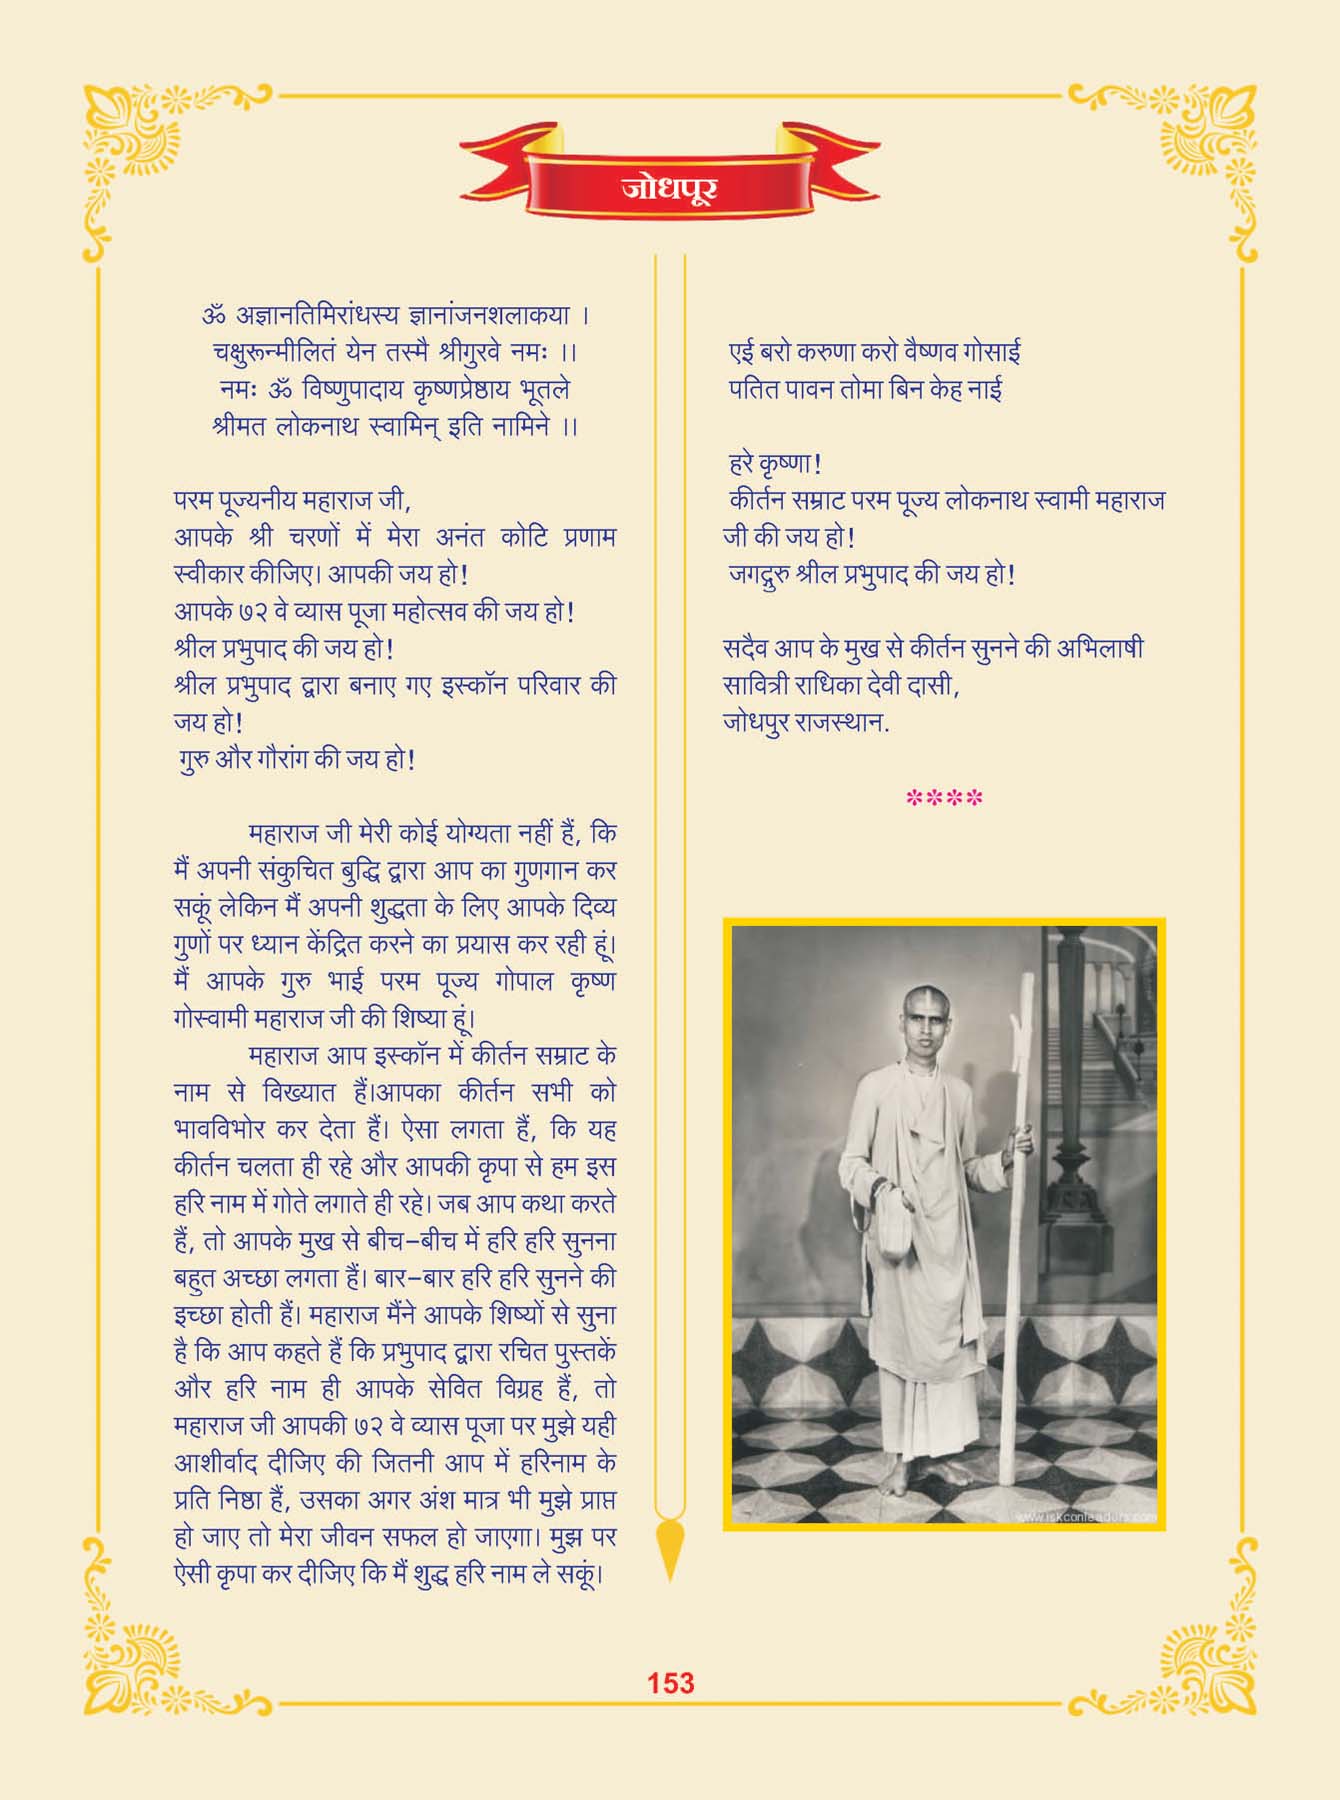 जोधपूर
ॐ अज्ञानतिमिरांधस्य ज्ञानांजनशलाकया ।
चक्षुरून्मीलितं येन तस्मै श्रीगुरवे नमः ।।
नमः ॐ विष्णुपादाय कृष्णप्रेष्ठाय भूतले
श्रीमत लोकनाथ स्वामिन् इति नामिने ।।
परम पूज्यनीय महाराज जी,
आपके श्री चरणों में मेरा अनंत कोटि प्रणाम
स्वीकार कीजिए। आपकी जय हो!
आपके ७२ वे व्यास पूजा महोत्सव की जय हो!
श्रील प्रभुपाद की जय हो!
श्रील प्रभुपाद द्वारा बनाए गए इस्कॉन परिवार की
जय हो!
गुरु और गौरांग की जय हो!
महाराज जी मेरी कोई योग्यता नहीं हैं, कि
मैं अपनी संकुचित बुद्धि द्वारा आप का गुणगान कर
सकूं लेकिन मैं अपनी शुद्धता के लिए आपके दिव्य
गुणों पर ध्यान केंद्रित करने का प्रयास कर रही हूं।
मैं आपके गुरु भाई परम पूज्य गोपाल कृष्ण
गोस्वामी महाराज जी की शिष्या हूं।
महाराज आप इस्कॉन में कीर्तन सम्राट के
नाम से विख्यात हैं।आपका कीर्तन सभी को
भावविभोर कर देता हैं। ऐसा लगता हैं, कि यह
कीर्तन चलता ही रहे और आपकी कृपा से हम इस
हरि नाम में गोते लगाते ही रहे। जब आप कथा करते
हैं, तो आपके मुख से बीच–बीच में हरि हरि सुनना
बहुत अच्छा लगता हैं। बार–बार हरि हरि सुनने की
इच्छा होती हैं। महाराज मैंने आपके शिष्यों से सुना
है कि आप कहते हैं कि प्रभुपाद द्वारा रचित पुस्तकें
और हरि नाम ही आपके सेवित विग्रह हैं, तो
महाराज जी आपकी ७२ वे व्यास पूजा पर मुझे यही
आशीर्वाद दीजिए की जितनी आप में हरिनाम के
प्रति निष्ठा हैं, उसका अगर अंश मात्र भी मुझे प्राप्त
हो जाए तो मेरा जीवन सफल हो जाएगा। मुझ पर
ऐसी कृपा कर दीजिए कि मैं शुद्ध हरि नाम ले सकूं।
एई बरो करुणा करो वैष्णव गोसाई
पतित पावन तोमा बिन केह नाई
हरे कृष्णा!
कीर्तन सम्राट परम पूज्य लोकनाथ स्वामी महाराज
जी की जय हो!
जगद्गुरु श्रील प्रभुपाद की जय हो!
सदैव आप के मुख से कीर्तन सुनने की अभिलाषी
सावित्री राधिका देवी दासी,
जोधपुर राजस्थान.
****
www.iskconleaders.com
153